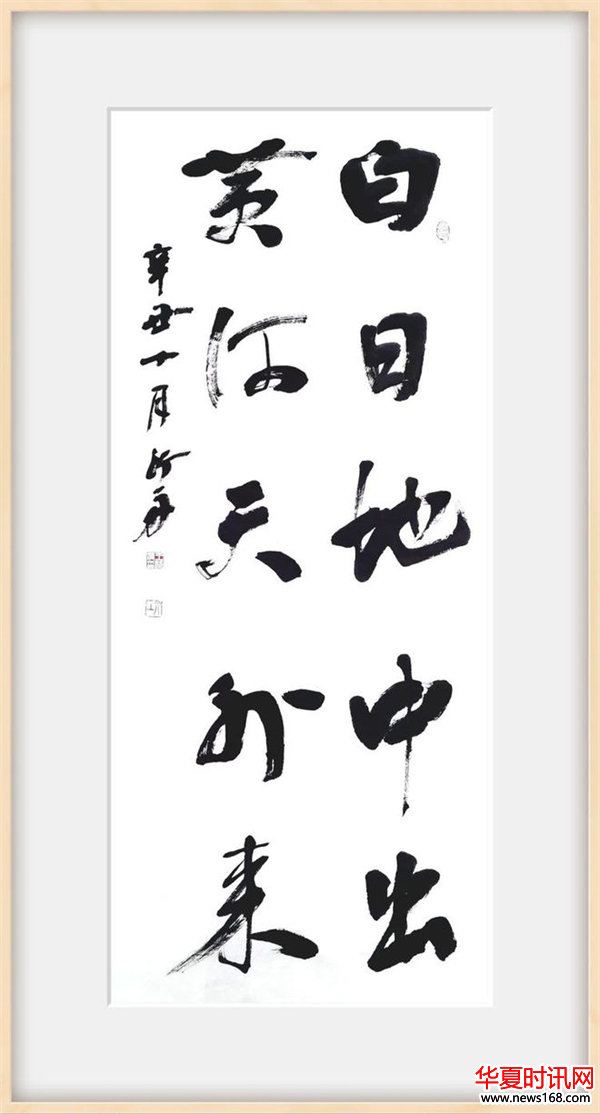 白日地中出
黄河天外来
辛丑十月
华夏时讯网
www.news168.com